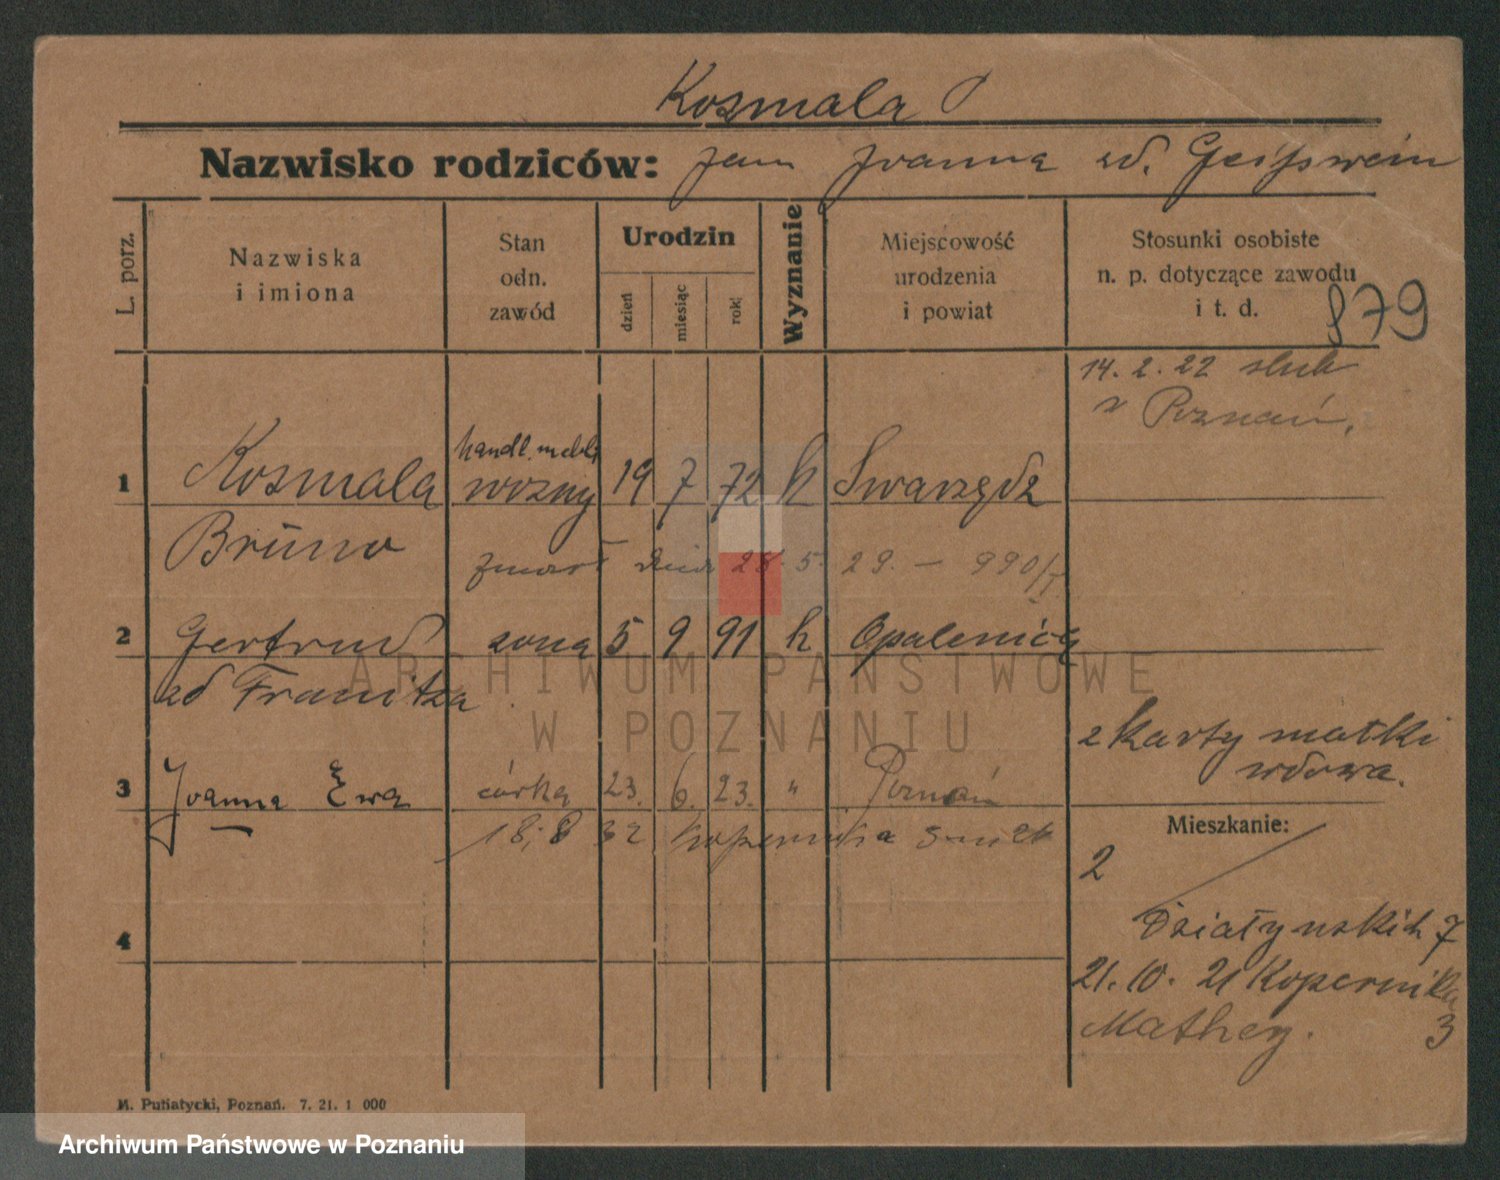 Kosmala
Nazwisko rodziców: Jan Joanna zd. Geisswein
L. porz.
Nazwiska
i imiona
Stan
odn.
zawód
Urodzin
dzień
miesiąc
rok
Wyznanie
Miejscowość
urodzenia
i powiat
Stosunki osobiste
n. p. dotyczące zawodu
i t. d.
879
14. 2. 22 slub
w Poznań.
handl. mebli
1 Kosmala woźny 19 7 72 k Swarzędz
Bruno zmarł dnia 28. 5. 29. — 990/
2 Gertrud żona 5 9 91 k Opalenicę
zd Franitza
z karty matki
wdowa.
3 Joanna Ewa córka 23. 6. 23. " Poznań
18. 8 32 Kopernika 3
Mieszkanie:
2
4
Działyńskich 7
21. 10. 21 Kopernika
Mathey. 3
M. Putiatycki, Poznań. 7. 21. 1 000
ARCHIWUM PAŃSTWOWE
W POZNANIU
Archiwum Państwowe w Poznaniu